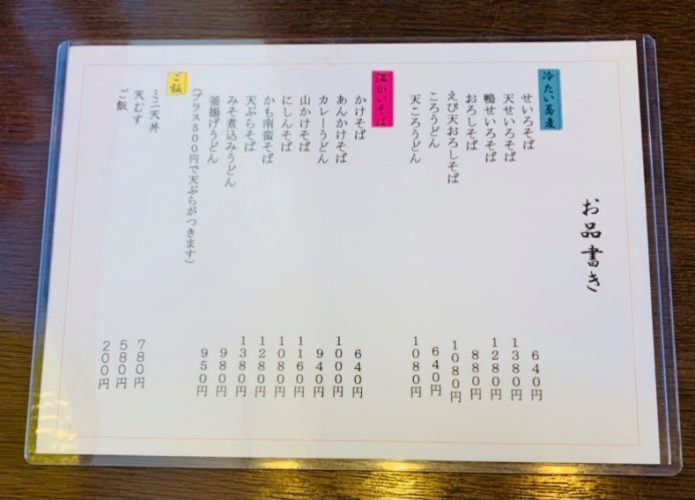 お品書き
冷たい蕎麦
せいろそば 640円
天せいろそば 1380円
鴨せいろそば 1280円
おろしそば 880円
えび天おろしそば 1080円
ころうどん 640円
天ころうどん 1080円
温かいそば
かけそば 640円
あんかけそば 1000円
カレーうどん 940円
山かけそば 1160円
にしんそば 1080円
かも南蛮そば 1280円
天ぷらそば 1380円
みそ煮込みうどん 980円
釜揚げうどん 950円
(プラス500円で天ぷらがつきます)
ご飯
ミニ天丼 780円
天むす 580円
ご飯 200円